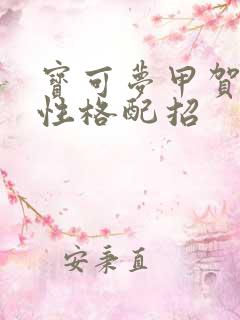 寶可夢甲賀
性格配招
安秉直